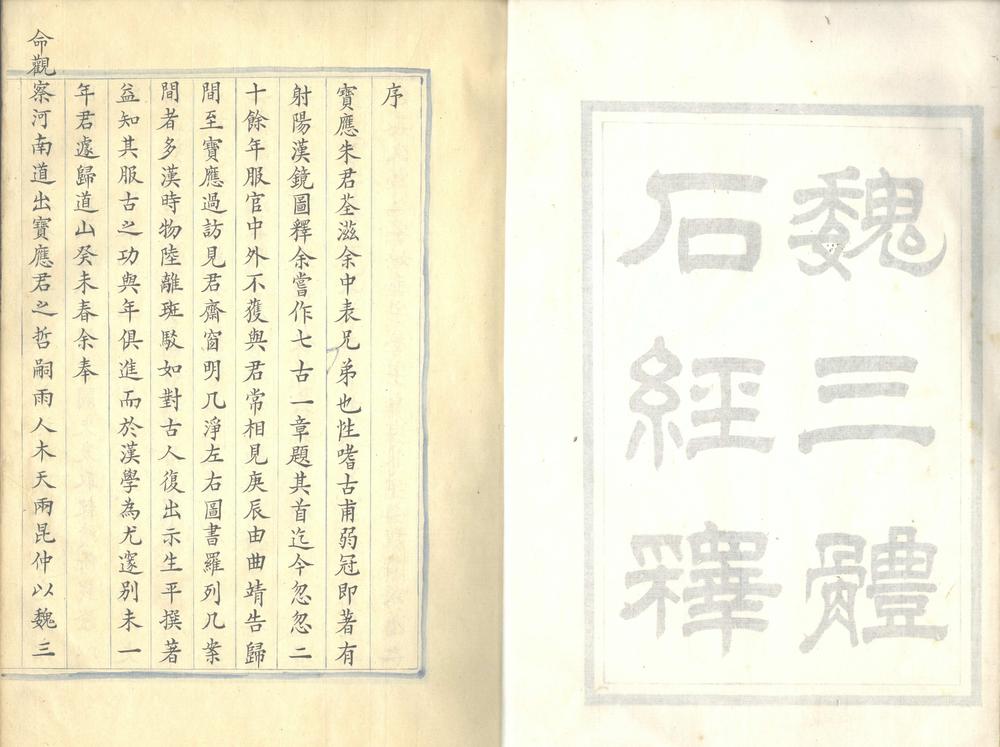 魏三體
石經釋
序
寶應朱君荃滋余中表兄弟也性嗜古甫弱冠即著有
射陽漢鏡圖釋余嘗作七古一章題其首迄今忽忽二
十餘年服官中外不獲與君常相見庚辰由曲靖告歸
間至寶應過訪見君齋窗明几淨左右圖書羅列几案
間者多漢時物陸離斑駁如對古人復出示生平撰著
益知其服古之功與年俱進而於漢學為尤邃别未一
年君遽歸道山癸未春余奉
命觀察河南道出寶應君之哲嗣雨人木天兩昆仲以魏三